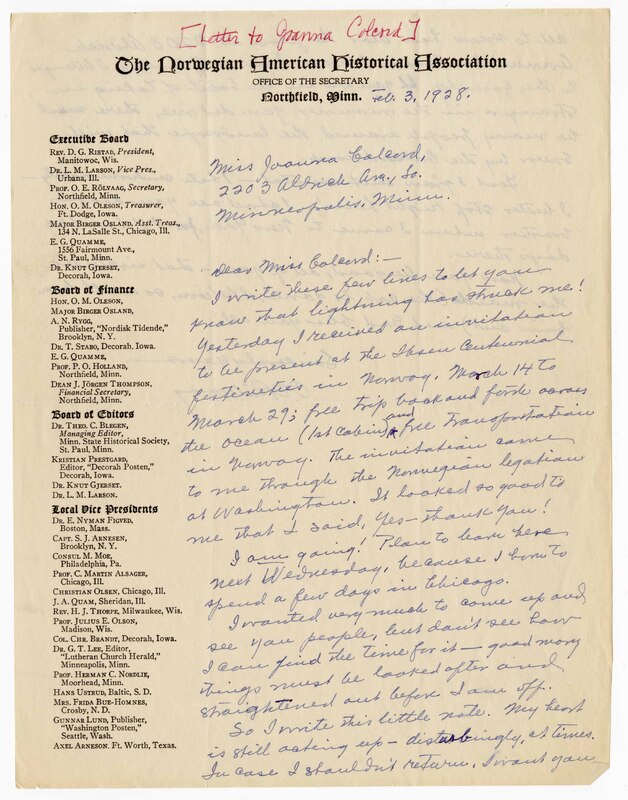 [Letter to Joanna Colcord]
The Norwegian American Historical Association
OFFICE OF THE SECRETARY
Northfield, Minn. Feb. 3, 1928.
Executive Board
REV. D. G. RISTAD, President,
Manitowoc, Wis.
DR. L. M. LARSON, Vice Pres.,
Urbana, Ill.
PROF. O. E. RÖLVAAG, Secretary,
Northfield, Minn.
HON. O. M. OLESON, Treasurer,
Ft. Dodge, Iowa.
MAJOR BIRGER OSLAND, Asst. Treas.,
134 N. LaSalle St., Chicago, Ill.
E. G. QUAMME,
1556 Fairmount Ave.,
St. Paul, Minn.
DR. KNUT GJERSET,
Decorah, Iowa.
Board of Finance
HON. O. M. OLESON,
MAJOR BIRGER OSLAND,
A. N. RYGG,
Publisher, "Nordisk Tidende,"
Brooklyn, N. Y.
DR. T. STABO, Decorah, Iowa.
E. G. QUAMME,
PROF. P. O. HOLLAND,
Northfield, Minn.
DEAN J. JÖRGEN THOMPSON,
Financial Secretary,
Northfield, Minn.
Board of Editors
DR. THEO. C. BLEGEN,
Managing Editor,
Minn. State Historical Society,
St. Paul, Minn.
KRISTIAN PRESTGARD,
Editor, "Decorah Posten,"
Decorah, Iowa.
DR. KNUT GJERSET.
DR. L. M. LARSON.
Local Vice Presidents
DR. E. NYMAN FIGVED,
Boston, Mass.
CAPT. S. J. ARNESEN,
Brooklyn, N. Y.
CONSUL M. MOE,
Philadelphia, Pa.
PROF. C. MARTIN ALSAGER,
Chicago, Ill.
CHRISTIAN OLSEN, Chicago, Ill.
J. A. QUAM, Sheridan, Ill.
REV. H. J. THORPE, Milwaukee, Wis.
PROF. JULIUS E. OLSON,
Madison, Wis.
COL. CHR. BRANDT, Decorah, Iowa.
DR. G. T. LEE, Editor,
"Lutheran Church Herald,"
Minneapolis, Minn.
PROF. HERMAN C. NORDLIE,
Moorhead, Minn.
HANS USTRUD, Baltic, S. D.
MRS. FRIDA BUE-HOMNES,
Crosby, N. D.
GUNNAR LUND, Publisher,
"Washington Posten,"
Seattle, Wash.
AXEL ARNESON, Ft. Worth, Texas.
Miss Joanna Colcord,
2203 Aldrich Ave., So.
Minneapolis, Minn.
Dear Miss Colcord:—
I write these few lines to let you
know that lightning has struck me!
Yesterday I received an invitation
to be present at the Ibsen Centennial
festivities in Norway, March 14 to
March 29; free trip back and forth across
the ocean (1st Cabin) and free transportation
in Norway. The invitation came
to me through the Norwegian legation
at Washington. It looked so good to
me that I said, Yes — thank you!
I am going! Plan to leave here
next Wednesday, because I have to
spend a few days in Chicago.
I wanted very much to come up and
see you people, but don't see how
I can find the time for it — good many
things must be looked after and
straightened out before I am off.
So I write this little note. My heart
is still acting up — disturbingly, at times.
In case I shouldn't return, I want you